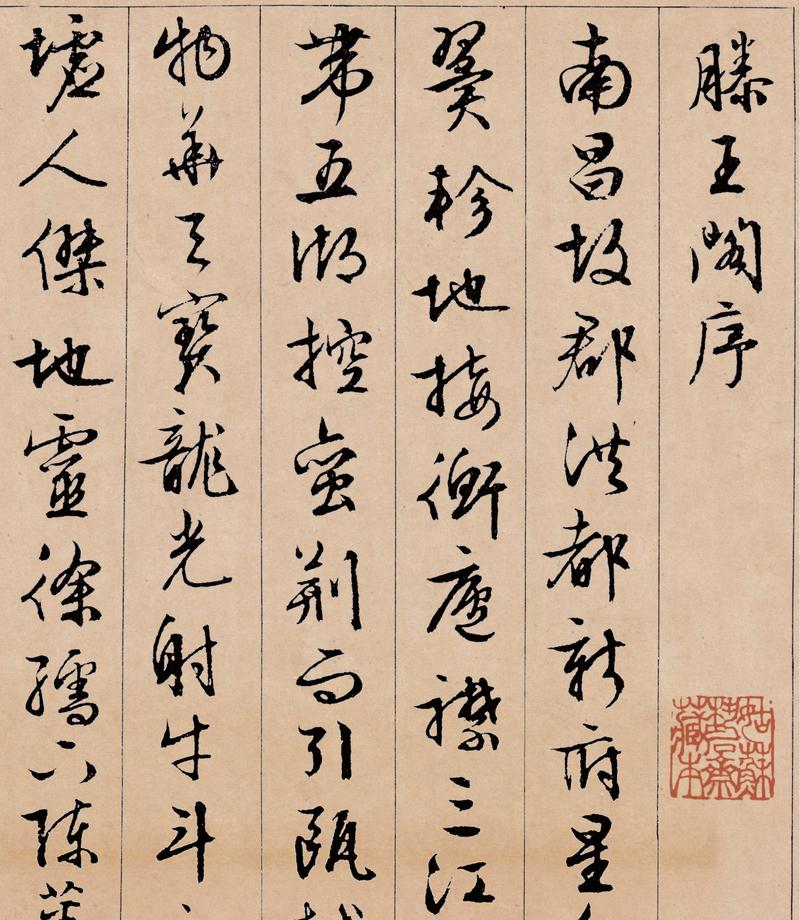 滕王閣序
南昌故郡洪都新府星
翼軫地接衡廬襟三江
帶五湖控蠻荊而引甌
物華天寶龍光射牛斗
墟人傑地靈徐孺下陳蕃
姑蘇
齋
藏本